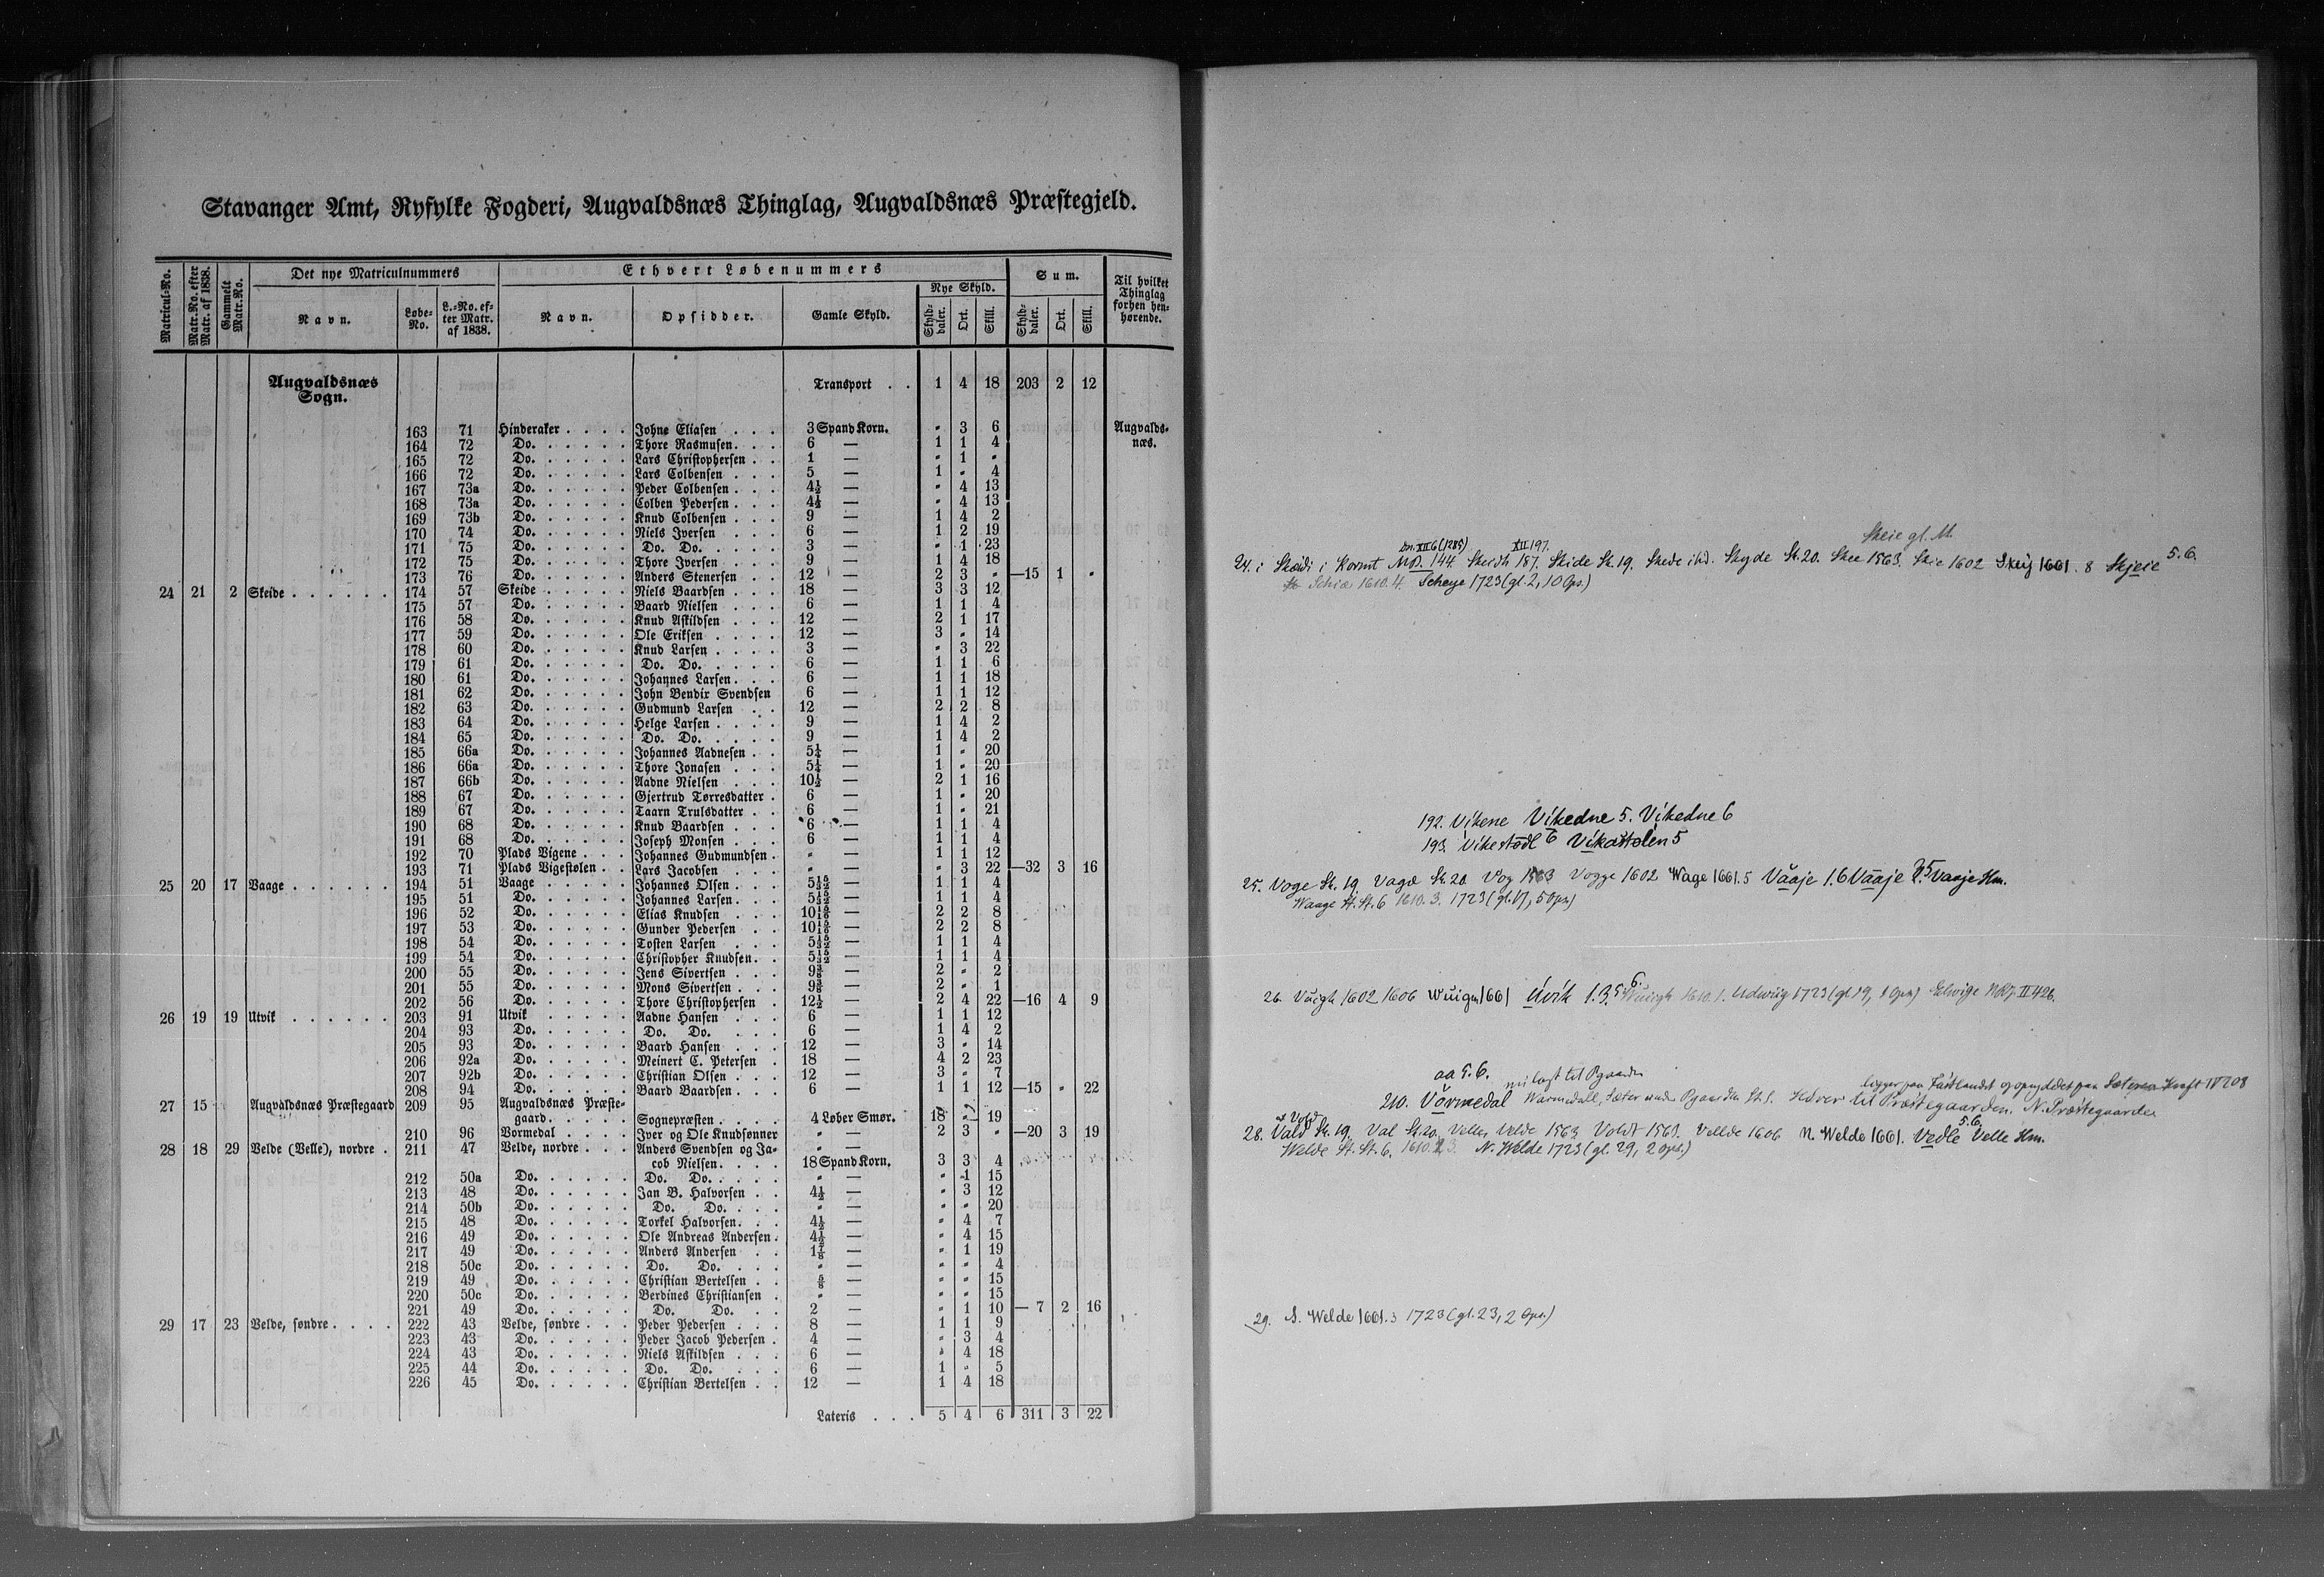 Stavanger Amt, Ryfylke Fogderi, Augvaldsnæs Thinglag, Augvaldsnæs Præstegjeld.
Matricul-No. | Matr.No. efter Matr. af 1838. | Gammelt Matr.No. | Det nye Matriculnummers | Ethvert Løbenummers | Sum. | Til hvilket Thinglag forhen henhørende.
Navn. | Løbe-No. | L.-No. efter Matr. af 1838. | Navn. | Opsidder. | Gamle Skyld. | Nye Skyld. | Skylddaler. | Ort. | Skill. | Skylddaler. | Ort. | Skill.
Augvaldsnæs Sogn. | Transport . . | 1 | 4 | 18 | 203 | 2 | 12
163 | 71 | Hinderaker . . . . | Johne Eliasen . . . | 3 Spand Korn. | " | 3 | 6 | Augvaldsnæs.
164 | 72 | Do. . . . . . | Thore Rasmusen . . . | 6 — | 1 | 1 | 4
165 | 72 | Do. . . . . . | Lars Christophersen . . | 1 — | " | 1 | "
166 | 72 | Do. . . . . . | Lars Colbensen . . . | 5 — | 1 | " | 4
167 | 73a | Do. . . . . . | Peder Colbensen . . . | 4½ — | " | 4 | 13
168 | 73a | Do. . . . . . | Colben Pedersen . . . | 4½ — | " | 4 | 13
169 | 73b | Do. . . . . . | Knud Colbensen . . . | 9 — | 1 | 4 | 2
170 | 74 | Do. . . . . . | Niels Iversen . . . | 6 — | 1 | 2 | 19
171 | 75 | Do. . . . . . | Do. Do. . . . . | 3 — | " | 1 | 23
172 | 75 | Do. . . . . . | Thore Iversen . . . | 9 — | 1 | 4 | 18
173 | 76 | Do. . . . . . | Anders Stenersen . . | 12 — | 2 | 3 | " | —15 | 1 | "
24 | 21 | 2 | Skeide . . . . . . | 174 | 57 | Skeide . . . . . | Niels Baardsen . . . | 18 — | 3 | 3 | 12
175 | 57 | Do. . . . . . | Baard Nielsen . . . | 6 — | 1 | 1 | 4
176 | 58 | Do. . . . . . | Knud Askildsen . . . | 12 — | 2 | 1 | 17
177 | 59 | Do. . . . . . | Ole Eriksen . . . . | 12 — | 3 | " | 14
178 | 60 | Do. . . . . . | Knud Larsen . . . . | 3 — | " | 3 | 22
179 | 61 | Do. . . . . . | Do. Do. . . . . | 6 — | 1 | 1 | 6
180 | 61 | Do. . . . . . | Johannes Larsen . . . | 6 — | 1 | 1 | 18
181 | 62 | Do. . . . . . | John Bendix Svendsen | 6 — | 1 | 1 | 12
182 | 63 | Do. . . . . . | Gudmund Larsen . . | 12 — | 2 | 2 | 8
183 | 64 | Do. . . . . . | Helge Larsen . . . . | 9 — | 1 | 4 | 2
184 | 65 | Do. . . . . . | Do. Do. . . . . | 9 — | 1 | 4 | 2
185 | 66a | Do. . . . . . | Johannes Aadnesen . . | 5¼ — | 1 | " | 20
186 | 66a | Do. . . . . . | Thore Jonasen . . . | 5¼ — | 1 | " | 20
187 | 66b | Do. . . . . . | Aadne Nielsen . . . | 10½ — | 2 | 1 | 16
188 | 67 | Do. . . . . . | Gjertrud Torresdatter . | 6 — | 1 | " | 20
189 | 67 | Do. . . . . . | Taarn Trulsdatter . . | 6 — | 1 | " | 21
190 | 68 | Do. . . . . . | Knud Baardsen . . . | 6 — | 1 | 1 | 4
191 | 68 | Do. . . . . . | Joseph Monsen . . . | 6 — | 1 | 1 | 4
192 | 70 | Plads Vigene . . . | Johannes Gudmundsen . | " — | 1 | 1 | 12
193 | 71 | Plads Vigestølen . . | Lars Jacobsen . . . | " — | " | 3 | 22 | —32 | 3 | 16
25 | 20 | 17 | Vaage . . . . . . | 194 | 51 | Vaage . . . . . | Johannes Olsen . . . | 5 15/32 — | 1 | 1 | 4
195 | 51 | Do. . . . . . | Johannes Larsen . . . | 5 15/32 — | 1 | 1 | 4
196 | 52 | Do. . . . . . | Elias Knudsen . . . | 10 15/16 — | 2 | 2 | 8
197 | 53 | Do. . . . . . | Gunder Pedersen . . | 10 15/16 — | 2 | 2 | 8
198 | 54 | Do. . . . . . | Tosten Larsen . . . | 5 15/32 — | 1 | 1 | 4
199 | 54 | Do. . . . . . | Christopher Knudsen . . | 5 15/32 — | 1 | 1 | 4
200 | 55 | Do. . . . . . | Jens Sivertsen . . . | 9⅜ — | 2 | " | 2
201 | 55 | Do. . . . . . | Mons Sivertsen . . . | 9⅜ — | 2 | " | 1
202 | 56 | Do. . . . . . | Thore Christophersen . | 12½ — | 2 | 4 | 22 | —16 | 4 | 9
26 | 19 | 19 | Utvik . . . . . . | 203 | 91 | Utvik . . . . . | Aadne Hansen . . . | 6 — | 1 | 1 | 12
204 | 93 | Do. . . . . . | Do. Do. . . . | 6 — | 1 | 4 | 2
205 | 93 | Do. . . . . . | Baard Hansen . . . | 12 — | 3 | " | 14
206 | 92a | Do. . . . . . | Meinert C. Petersen . | 18 — | 4 | 2 | 23
207 | 92b | Do. . . . . . | Christian Olsen . . . | 12 — | 3 | " | 7
208 | 94 | Do. . . . . . | Baard Baardsen . . . | 6 — | 1 | 1 | 12 | —15 | " | 22
27 | 15 | Augvaldsnæs Præstegaard | 209 | 95 | Augvaldsnæs Præste-
gaard . . . . . | Sognepræsten . . . . | 4 Løber Smør. | 18 | " | 19
210 | 96 | Vormedal . . . . | Iver og Ole Knudsønner | " — | 2 | 3 | " | —20 | 3 | 19
28 | 18 | 29 | Velde (Velle), nordre . | 211 | 47 | Velde, nordre . . . | Anders Svendsen og Ja-
cob Nielsen . . . . | 18 Spand Korn. | 3 | 3 | 4
212 | 50a | Do. . . . . . | Do. Do. . . . . | " — | " | 1 | 15
213 | 48 | Do. . . . . . | Jan B. Halvorsen . . | 4½ — | " | 3 | 12
214 | 50b | Do. . . . . . | Do. Do. . . . | " — | " | " | 20
215 | 48 | Do. . . . . . | Torkel Halvorsen . . . | 4½ — | " | 4 | 7
216 | 49 | Do. . . . . . | Ole Andreas Andersen . | 4½ — | " | 4 | 15
217 | 49 | Do. . . . . . | Anders Andersen . . | 1⅞ — | " | 1 | 19
218 | 50c | Do. . . . . . | Do. Do. . . . | " — | " | " | 4
219 | 49 | Do. . . . . . | Christian Bertelsen . . | ⅝ — | " | " | 15
220 | 50c | Do. . . . . . | Berdines Christiansen . | " — | " | " | 15
221 | 49 | Do. . . . . . | Do. Do. . . | 2 — | " | 1 | 10 | —7 | 2 | 16
29 | 17 | 23 | Velde, søndre . . . . | 222 | 43 | Velde, søndre . . . | Peder Pedersen . . . | 8 — | 1 | 1 | 9
223 | 43 | Do. . . . . . | Peder Jacob Pedersen . | 4 — | " | 3 | 4
224 | 43 | Do. . . . . . | Niels Askildsen . . . | 6 — | " | 4 | 18
225 | 44 | Do. . . . . . | Do. Do. . . . | 6 — | 1 | " | 5
226 | 45 | Do. . . . . . | Christian Bertelsen . . | 12 — | 1 | 4 | 18
Lateris . . . | 5 | 4 | 6 | 311 | 3 | 22
Skeie gl. M.
XII 6 (1285) XII 197.
24. i Skæidi i Kormt 144 Skeidh 187. Skide St. 19. Skede ibd. Skyde St. 20. Skee 1563. Skie 1602 Skeij 1661. 8 Skjeie 5.6.
Schiæ 1610.4. Scheye 1723 (gl. 2, 10 Ops.)
192. Vikene Vikedne 5. Vikedne 6
193. Vikestødl 6 Vikastølen 5
25. Voge St. 19. Vage St. 20 Vog 1563 Vogge 1602 Wage 1661.5 Våaje 1.6 Vaaje 3.5 Vaaje Hm.
Waage St. St. 6 1610.3. 1723 (gl. 17, 5 Ops.)
26. Vuigh 1602 1606 Wuigm 1661 Uvik 1.3.5 6. Wuigh 1610.1. Udwiig 1723 (gl. 19, 8 Ops.) NRJ. II 426.
aa 5.6. nu lagt til Pgaarden ligger paa Fastlandet og opryddet paa Sæteren Kraft IV 208
210. Vormedal Warmedall, Sæter under Pgaarden St. S. Hører til Præstegaarden. N. Præstegaarden
28. Vald St. 19. Val St. 20. Velle, Velde 1563 Voldt 1563. Vellde 1606 N. Welde 1661. Vedle 5.6. Velle Hm.
Welde St. St. 6. 1610. 3. N. Welde 1723 (gl. 29, 2 Ops.)
29. S. Welde 1661.3 1723 (gl. 23, 2 Ops.)